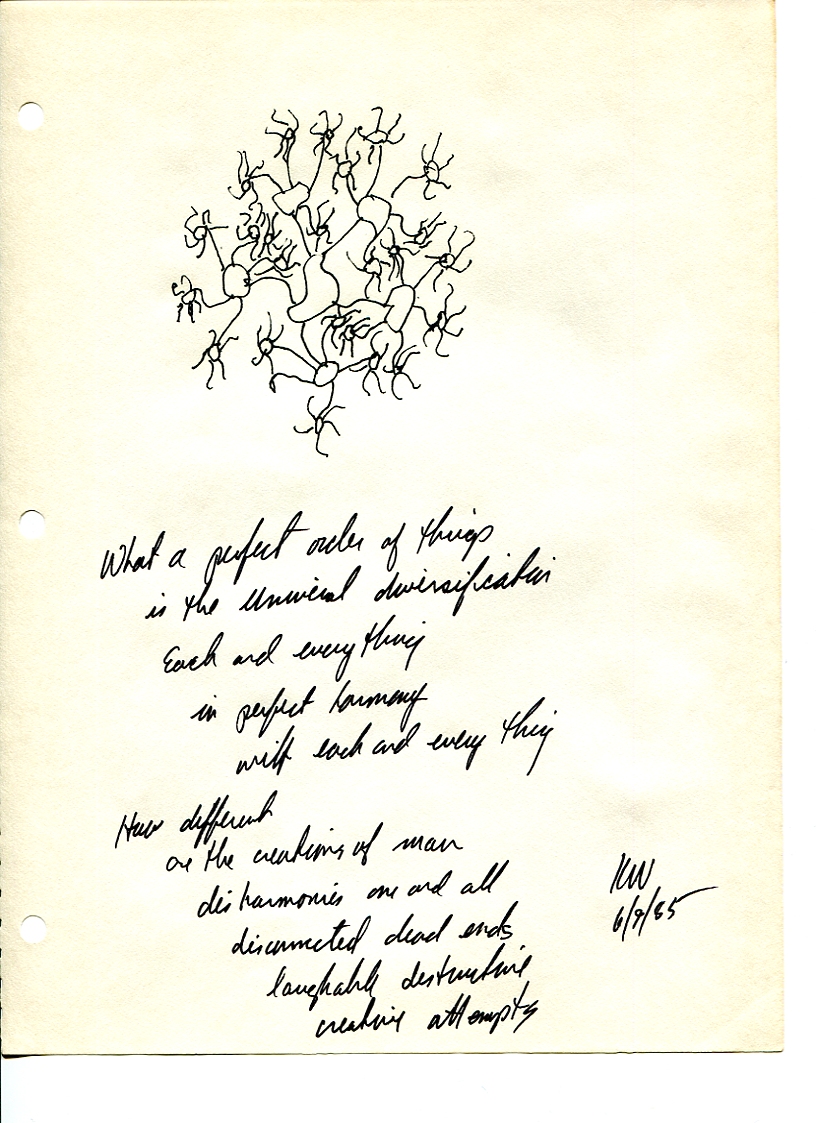 What a perfect order of things
is the Universal diversification
Each and every thing
in perfect harmony
with each and every thing
How different
are the creations of man
disharmonies one and all
disconnected dead ends
laughable destructive
creative attempts
KW
6/9/85